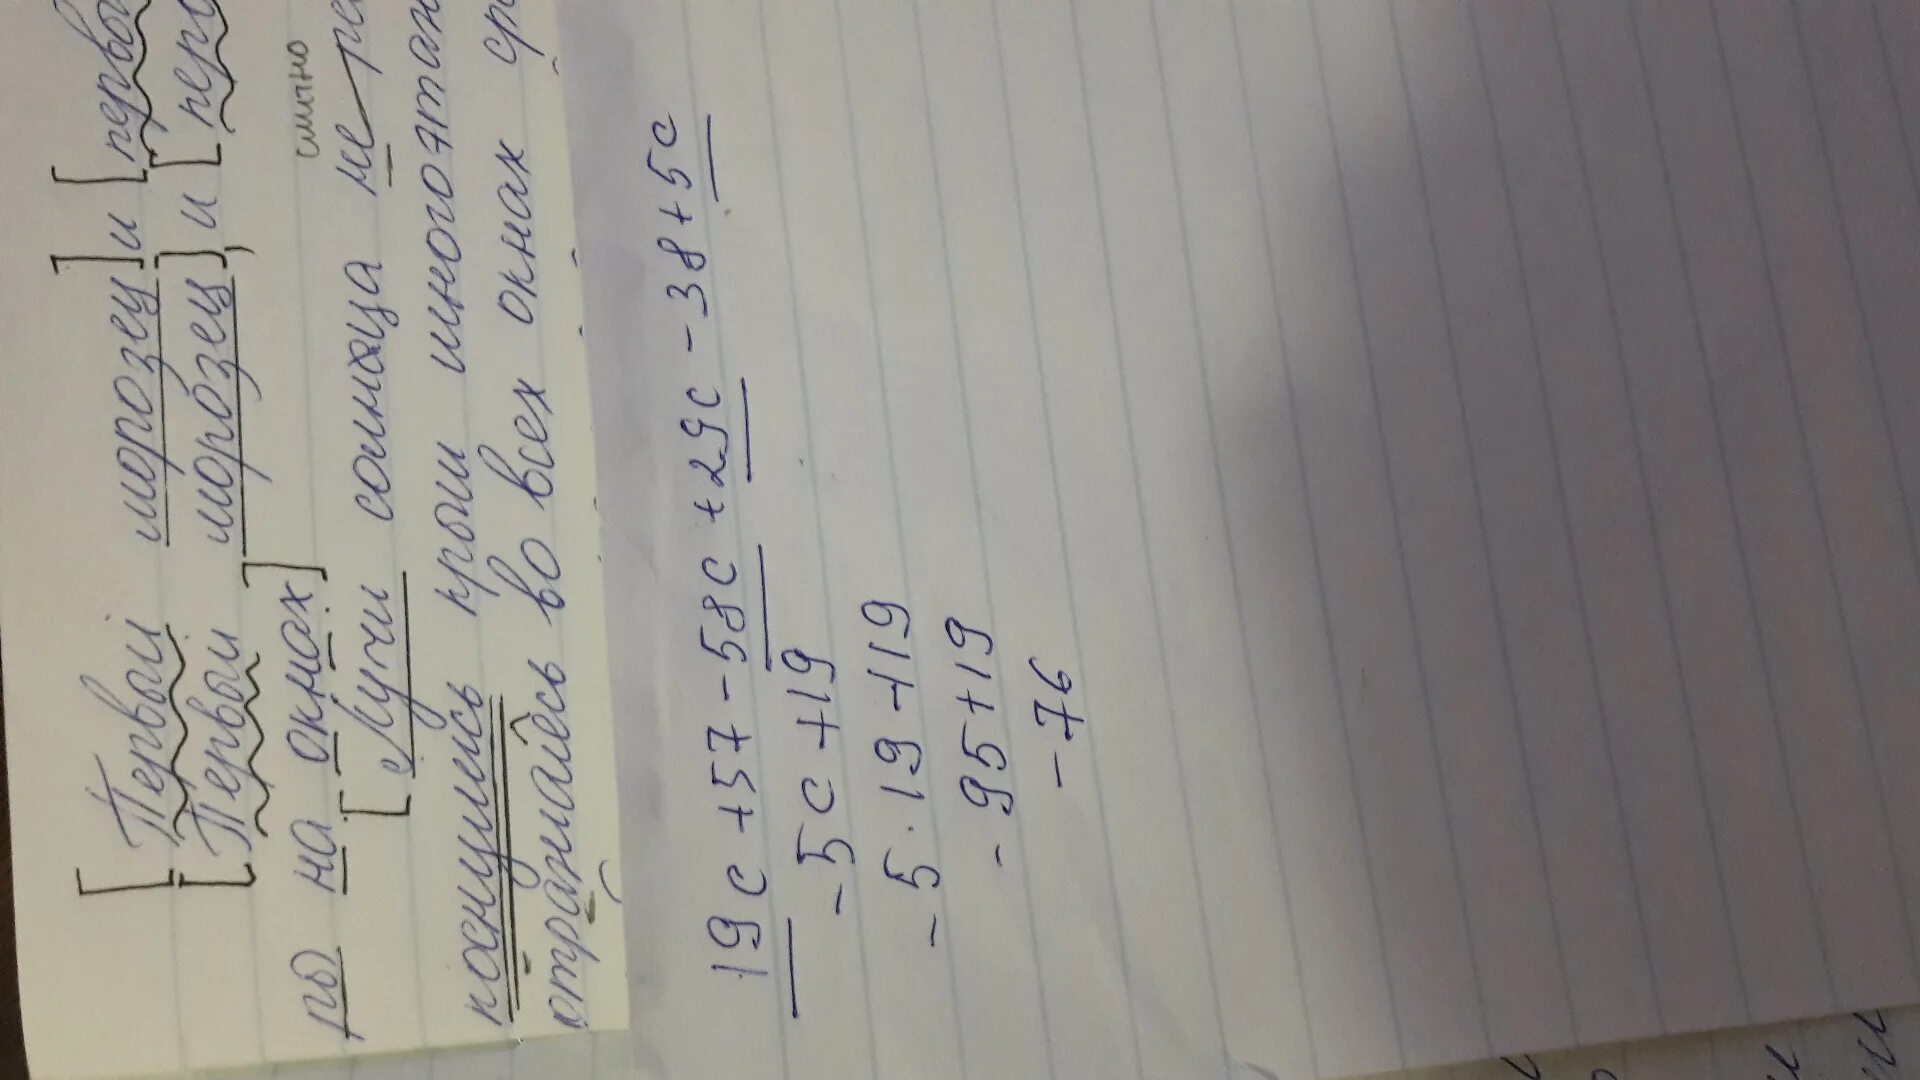 [Первый морозец] и [первы
[Первый морозец], и [перв
ры на окнах] слитно
[Лучи солнца не ре
коснулись крыш многоэтаж
отра во всех окнах
19c + 57 - 58c + 29c - 38 + 5c
-5c + 19
-5 · 19 + 19
-95 + 19
-76